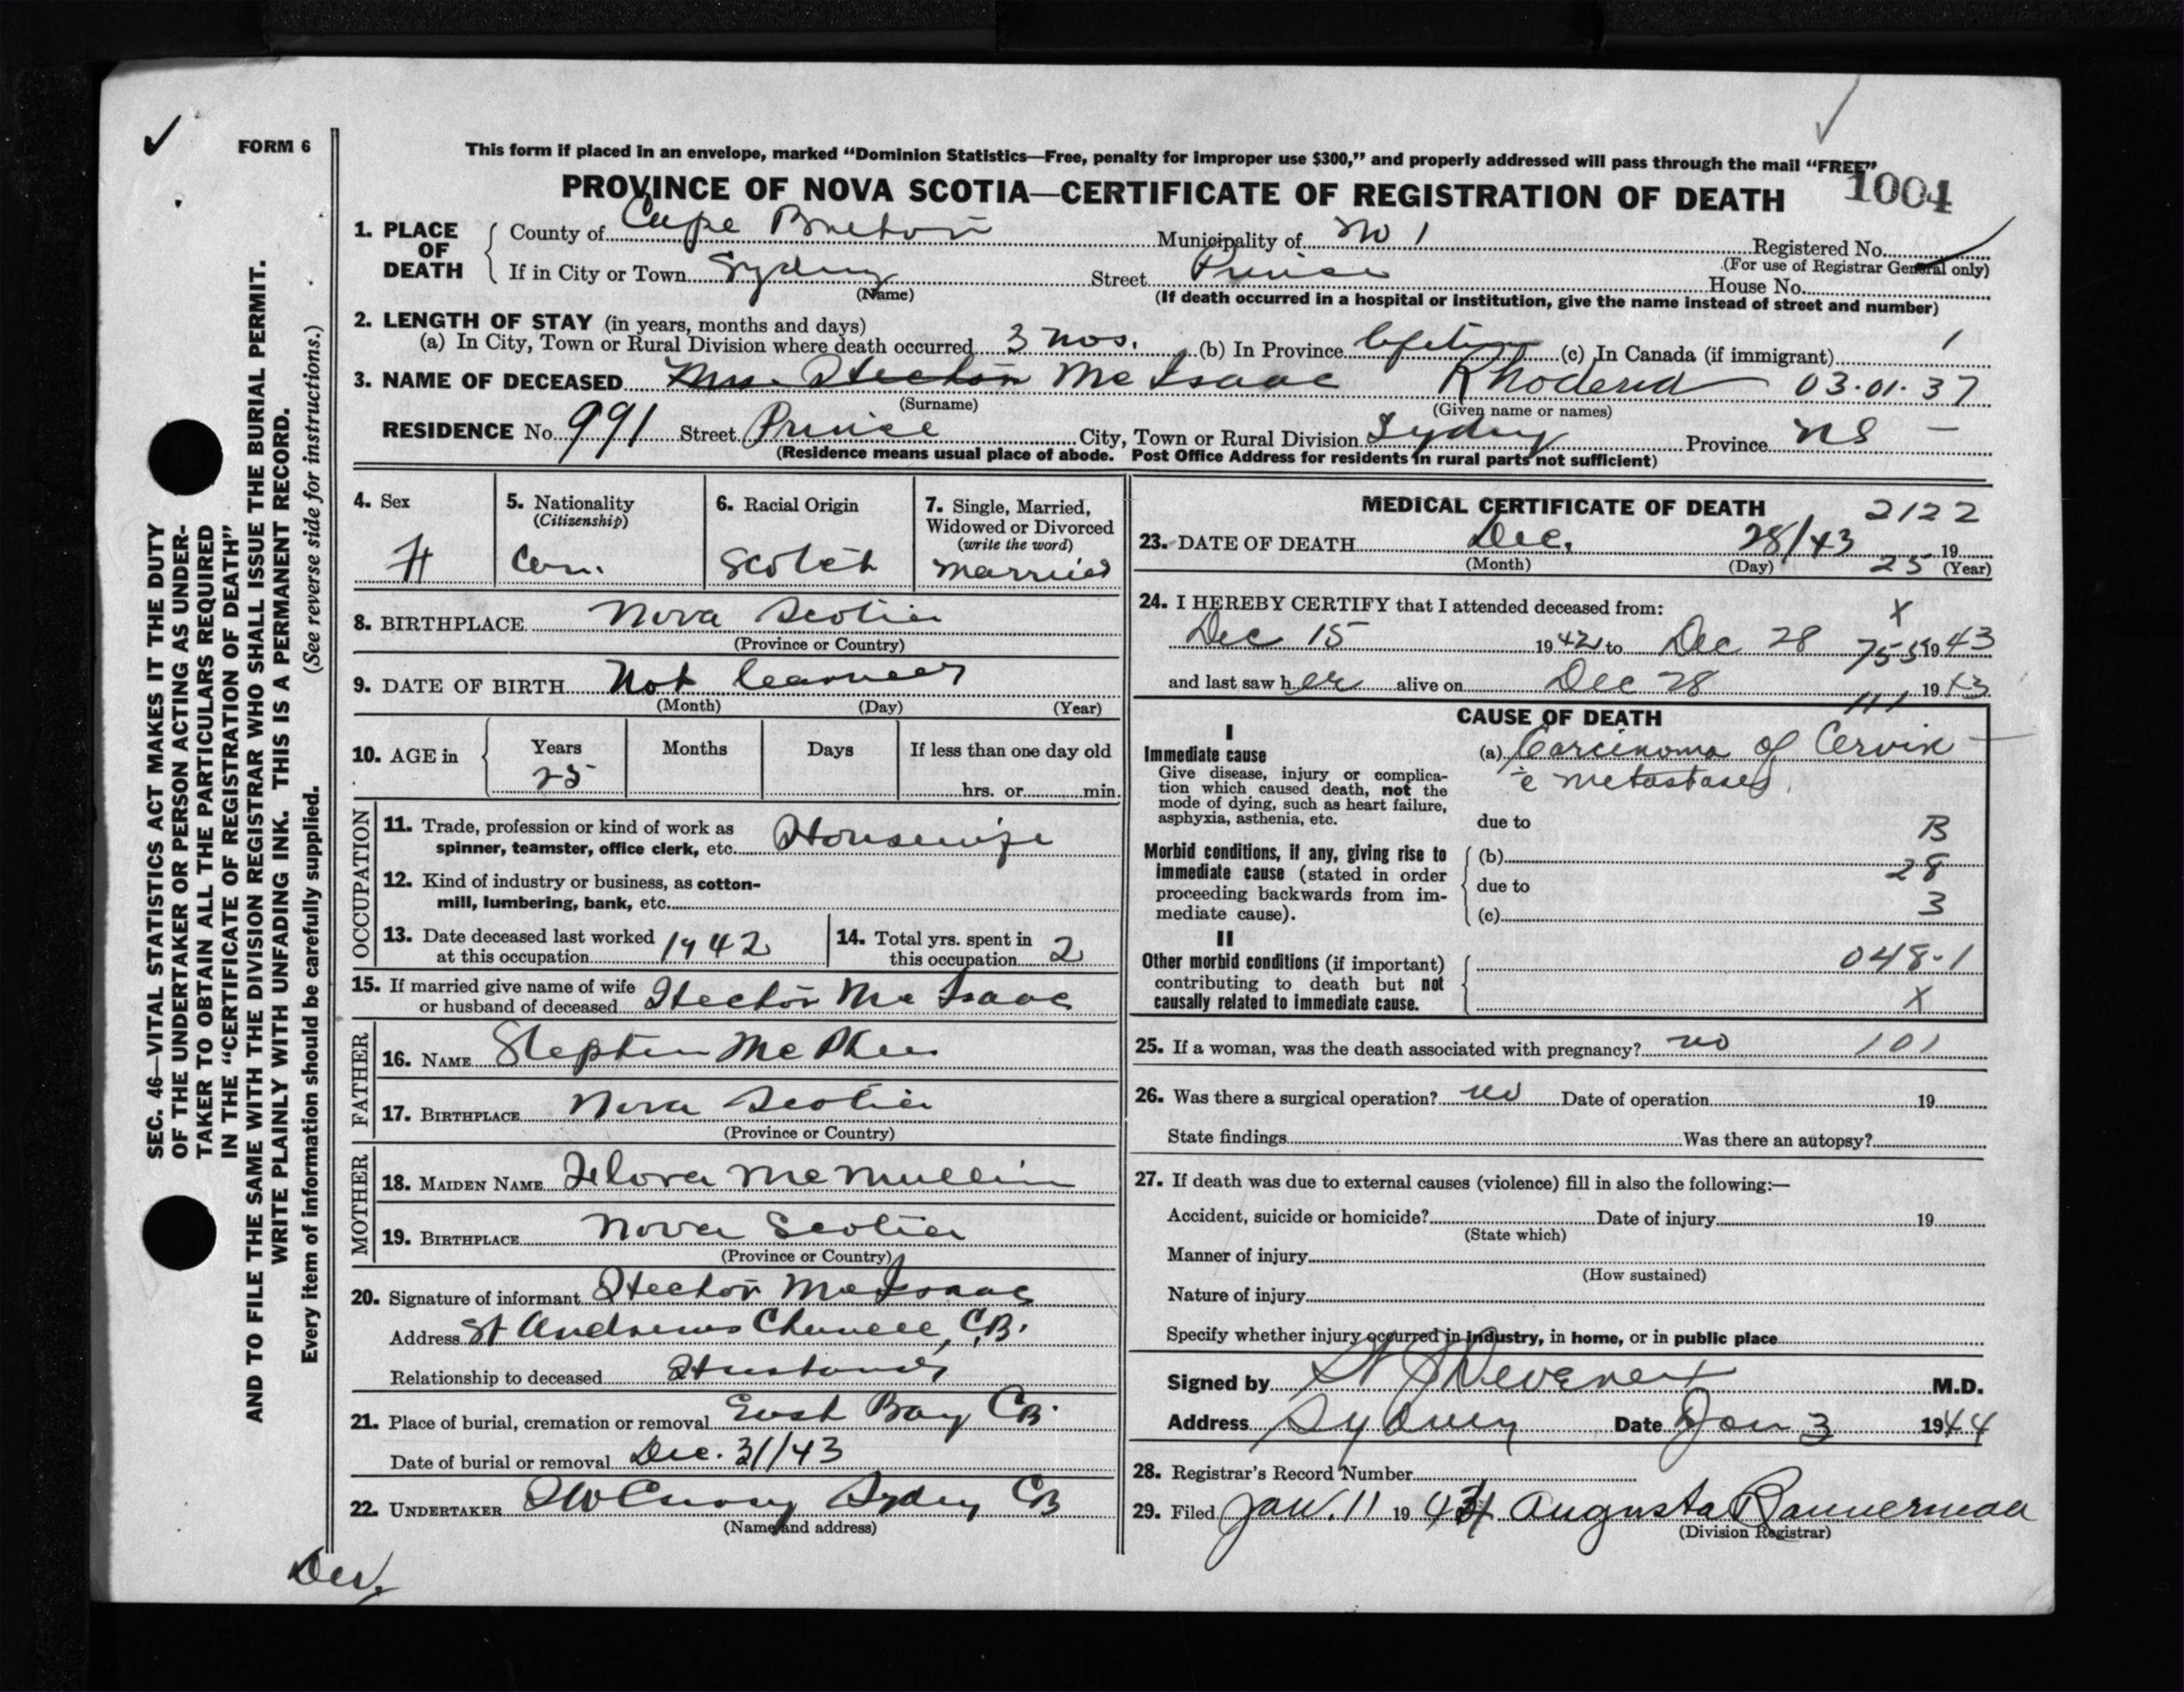 FORM 6
This form if placed in an envelope, marked “Dominion Statistics—Free, penalty for improper use $300,” and properly addressed will pass through the mail “FREE”
PROVINCE OF NOVA SCOTIA—CERTIFICATE OF REGISTRATION OF DEATH
1004
1. PLACE OF DEATH
County of Cape Breton Municipality of No 1 Registered No.
(For use of Registrar General only)
If in City or Town Sydney Street Prince House No.
(Name) (If death occurred in a hospital or institution, give the name instead of street and number)
2. LENGTH OF STAY (in years, months and days)
(a) In City, Town or Rural Division where death occurred 3 mos. (b) In Province lifetime (c) In Canada (if immigrant) 1
3. NAME OF DECEASED Mrs. Hector McIsaac Rhoderia 03·01·37
(Surname) (Given name or names)
RESIDENCE No. 991 Street Prince City, Town or Rural Division Sydney Province NS –
(Residence means usual place of abode. Post Office Address for residents in rural parts not sufficient)
4. Sex
F
5. Nationality
(Citizenship)
Can.
6. Racial Origin
Scotch
7. Single, Married,
Widowed or Divorced
(write the word)
married
8. BIRTHPLACE Nova Scotia
(Province or Country)
9. DATE OF BIRTH Not learned
(Month) (Day) (Year)
10. AGE in Years Months Days If less than one day old
25 hrs. or min.
OCCUPATION
11. Trade, profession or kind of work as
spinner, teamster, office clerk, etc. Housewife
12. Kind of industry or business, as cotton-
mill, lumbering, bank, etc.
13. Date deceased last worked
at this occupation 1942
14. Total yrs. spent in
this occupation 2
15. If married give name of wife
or husband of deceased Hector McIsaac
FATHER
16. NAME Stephen McPhee
17. BIRTHPLACE Nova Scotia
(Province or Country)
MOTHER
18. MAIDEN NAME Flora McMullin
19. BIRTHPLACE Nova Scotia
(Province or Country)
20. Signature of informant Hector McIsaac
Address St Andrews Channel, C.B.
Relationship to deceased Husband
21. Place of burial, cremation or removal East Bay CB.
Date of burial or removal Dec. 31/43
22. UNDERTAKER Sydney CB
(Name and address)
MEDICAL CERTIFICATE OF DEATH 2122
23. DATE OF DEATH Dec. 28/43 19
(Month) (Day) 25 (Year)
24. I HEREBY CERTIFY that I attended deceased from: X
Dec 15 1942 to Dec 28 755 1943
and last saw her alive on Dec 28 1943
111
CAUSE OF DEATH
I
Immediate cause
Give disease, injury or complica-
tion which caused death, not the
mode of dying, such as heart failure,
asphyxia, asthenia, etc.
(a) Carcinoma of Cervix –
c̄ metastases.
due to B
Morbid conditions, if any, giving rise to
immediate cause (stated in order
proceeding backwards from im-
mediate cause).
(b) 28
due to
(c) 3
II
Other morbid conditions (if important)
contributing to death but not
causally related to immediate cause.
048·1
X
25. If a woman, was the death associated with pregnancy? no 101
26. Was there a surgical operation? no Date of operation 19
State findings Was there an autopsy?
27. If death was due to external causes (violence) fill in also the following:—
Accident, suicide or homicide? Date of injury 19
(State which)
Manner of injury
(How sustained)
Nature of injury
Specify whether injury occurred in industry, in home, or in public place
Signed by Devereux M.D.
Address Sydney Date Jan 3 1944
28. Registrar's Record Number
29. Filed Jan. 11 1944 Augusta Bannerman
(Division Registrar)
SEC. 46—VITAL STATISTICS ACT MAKES IT THE DUTY
OF THE UNDERTAKER OR PERSON ACTING AS UNDER-
TAKER TO OBTAIN ALL THE PARTICULARS REQUIRED
IN THE “CERTIFICATE OF REGISTRATION OF DEATH”
AND TO FILE THE SAME WITH THE DIVISION REGISTRAR WHO SHALL ISSUE THE BURIAL PERMIT.
WRITE PLAINLY WITH UNFADING INK. THIS IS A PERMANENT RECORD.
Every item of information should be carefully supplied. (See reverse side for instructions.)